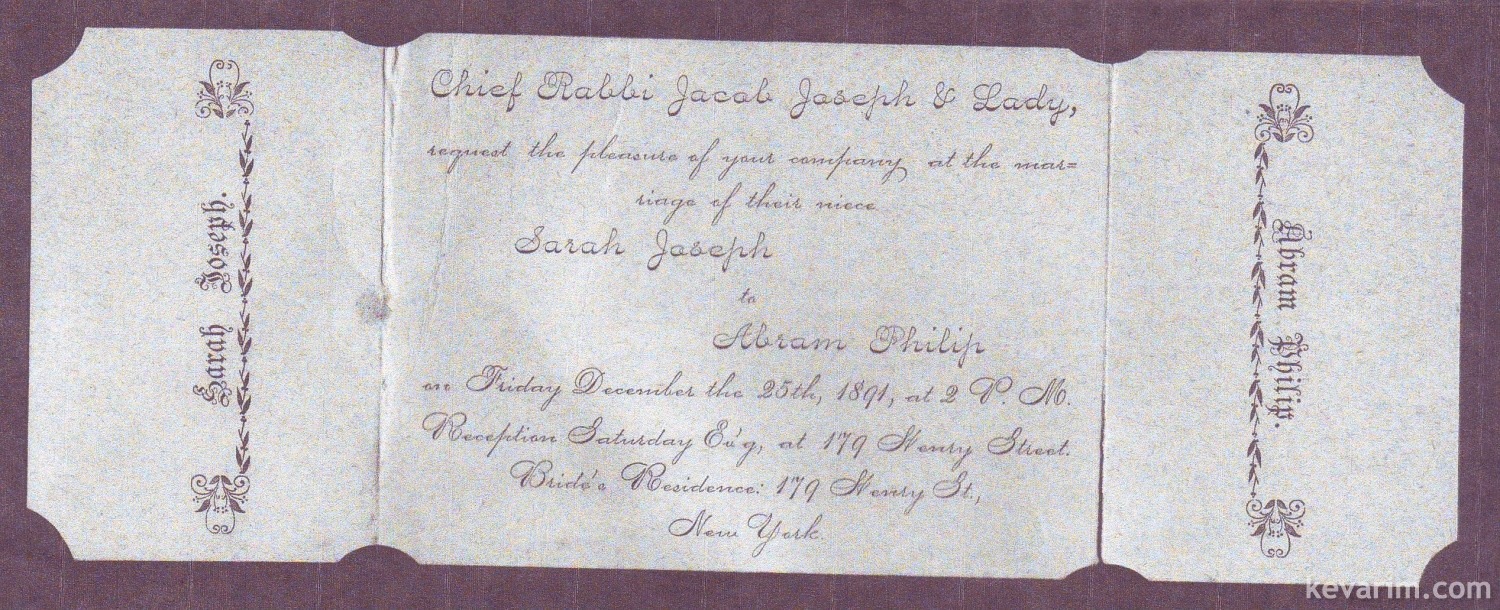 Sarah Joseph.
Chief Rabbi Jacob Joseph & Lady,
request the pleasure of your company at the mar=
riage of their niece
Sarah Joseph
to
Abram Philip
on Friday December the 25th, 1891, at 2 P. M.
Reception Saturday Ev'g, at 179 Henry Street.
Bride's Residence: 179 Henry St.,
New York.
Abram Philip.
kevarim.com